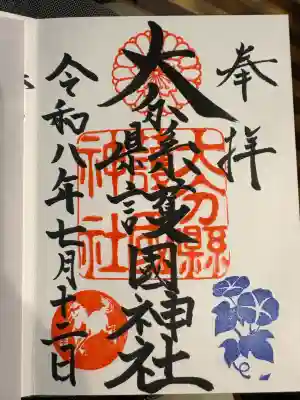 奉拝
大分県護國神社
大分縣護國神社
令和八年七月十二日